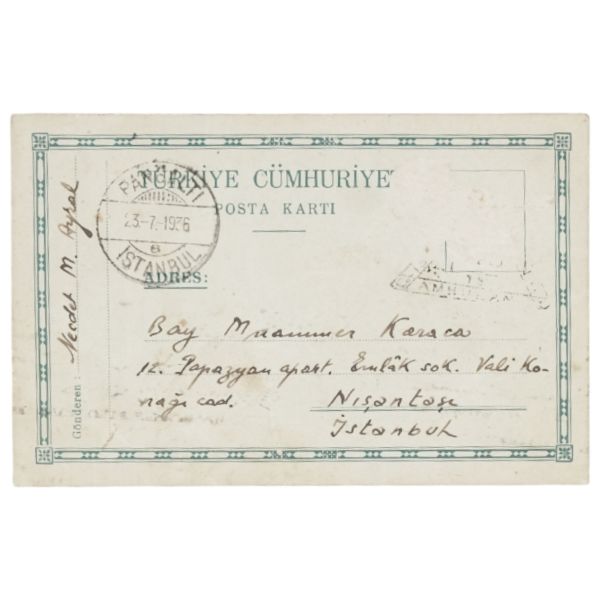 TÜRKİYE CÜMHURİYE
POSTA KARTI
PANGALTI
23-7-1936
6
İSTANBUL
ADRES:
Bay Muammer Karaca
12. Papazyan apart. Emlâk sok. Vali Ko-
nağı cad. Nişantaşı
İstanbul
Gönderen : Necdet M. Ayral